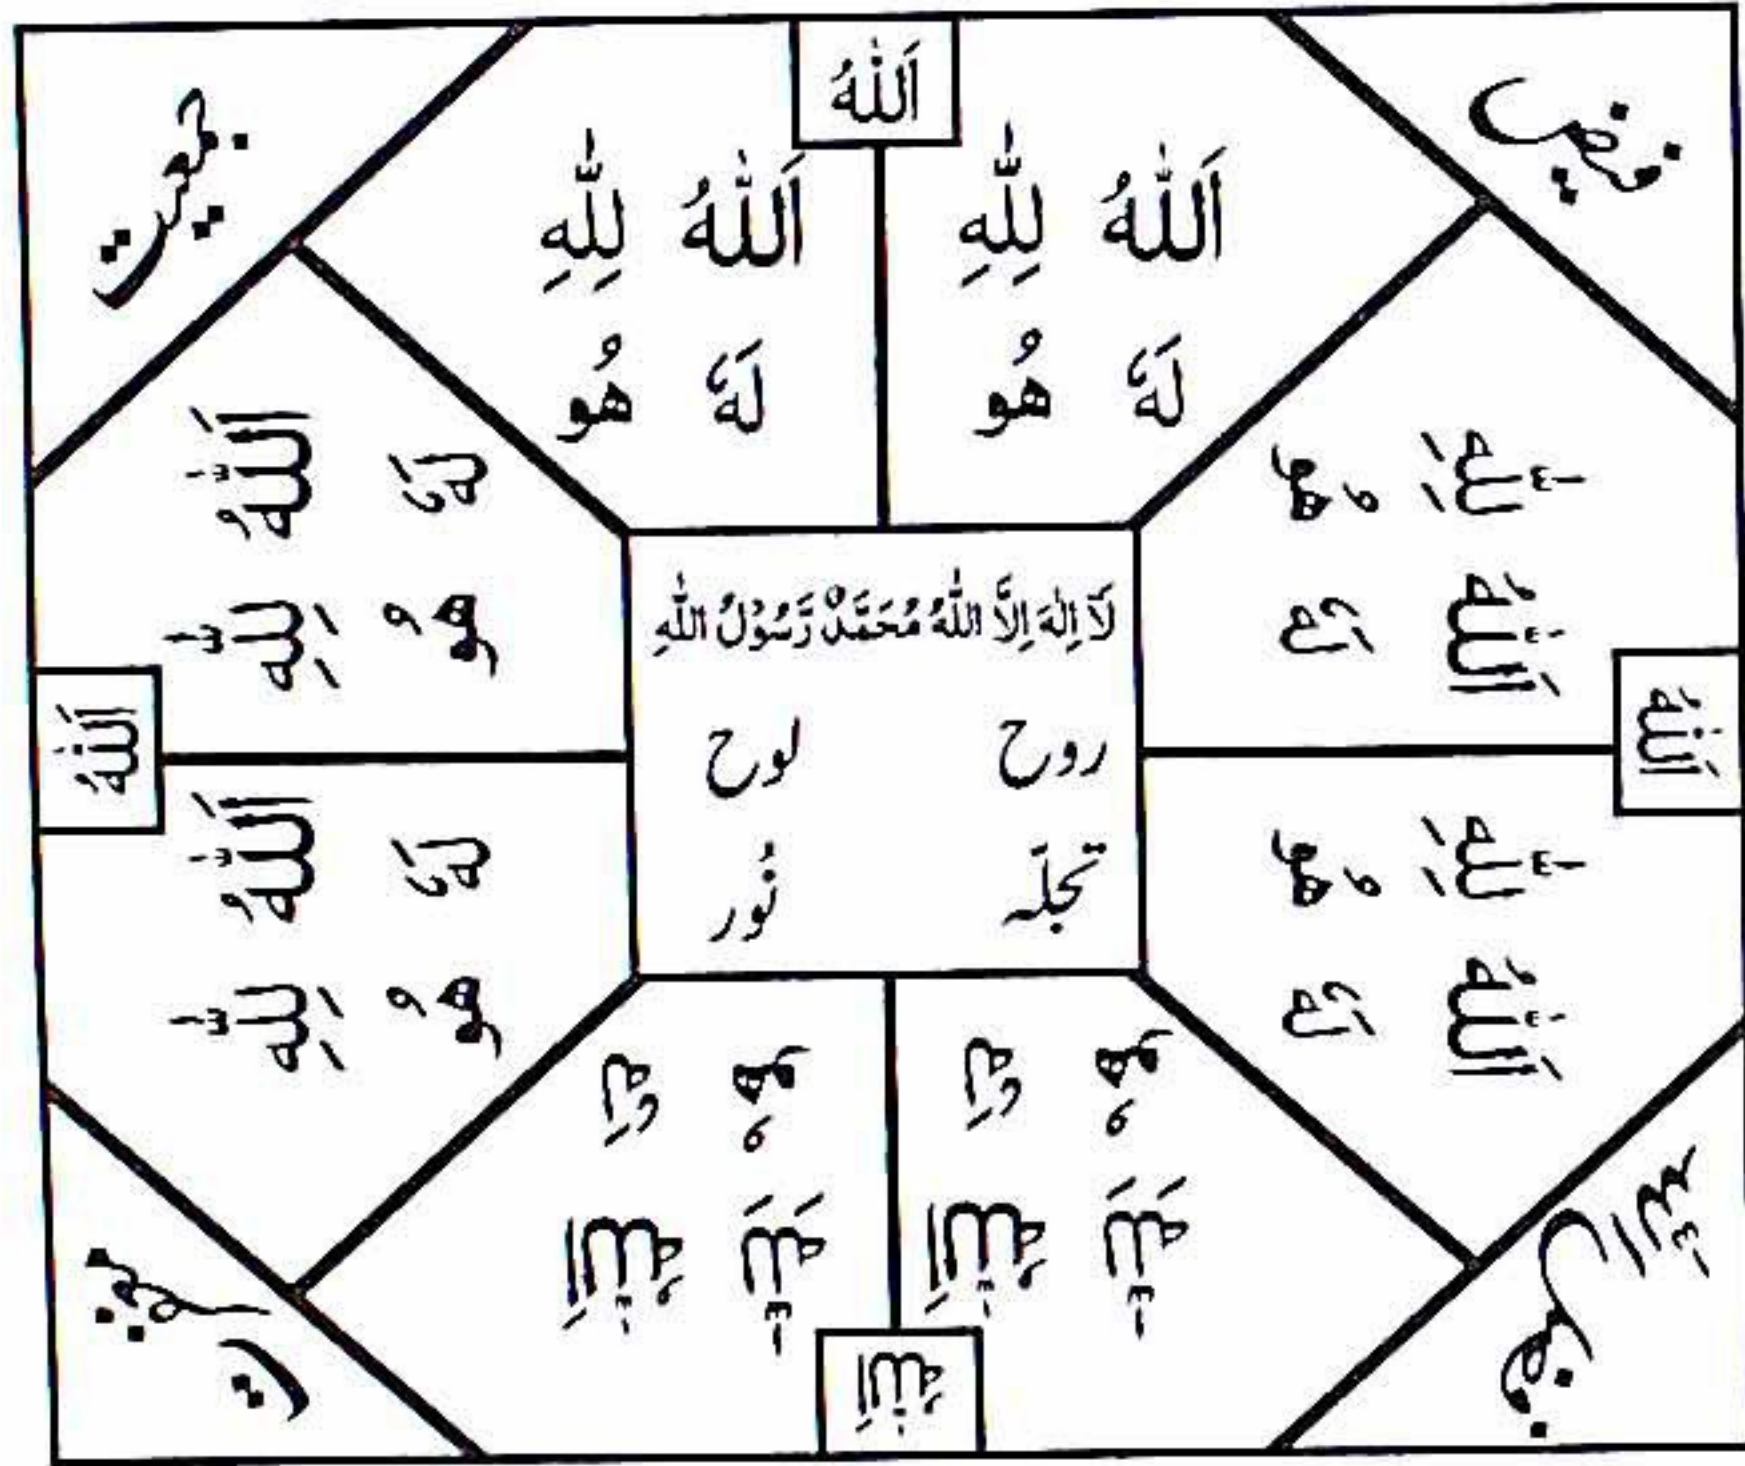 اَللّٰهُ
فیض
جمعیت
اَللّٰهُ لِلّٰهِ
لَهٗ هُو
اَللّٰهُ لِلّٰهِ
لَهٗ هُو
اَللّٰهُ
اَللّٰهُ لِلّٰهِ
لَهٗ هُو
اَللّٰهُ لِلّٰهِ
لَهٗ هُو
لَآ اِلٰهَ اِلَّا اللّٰهُ مُحَمَّدٌ رَّسُوْلُ اللّٰهِ
روح لوح
تجلّہ نُور
اَللّٰهُ
اَللّٰهُ لِلّٰهِ
لَهٗ هُو
اَللّٰهُ لِلّٰهِ
لَهٗ هُو
اَللّٰهُ لِلّٰهِ
لَهٗ هُو
اَللّٰهُ لِلّٰهِ
لَهٗ هُو
اَللّٰهُ
فضل اللہ